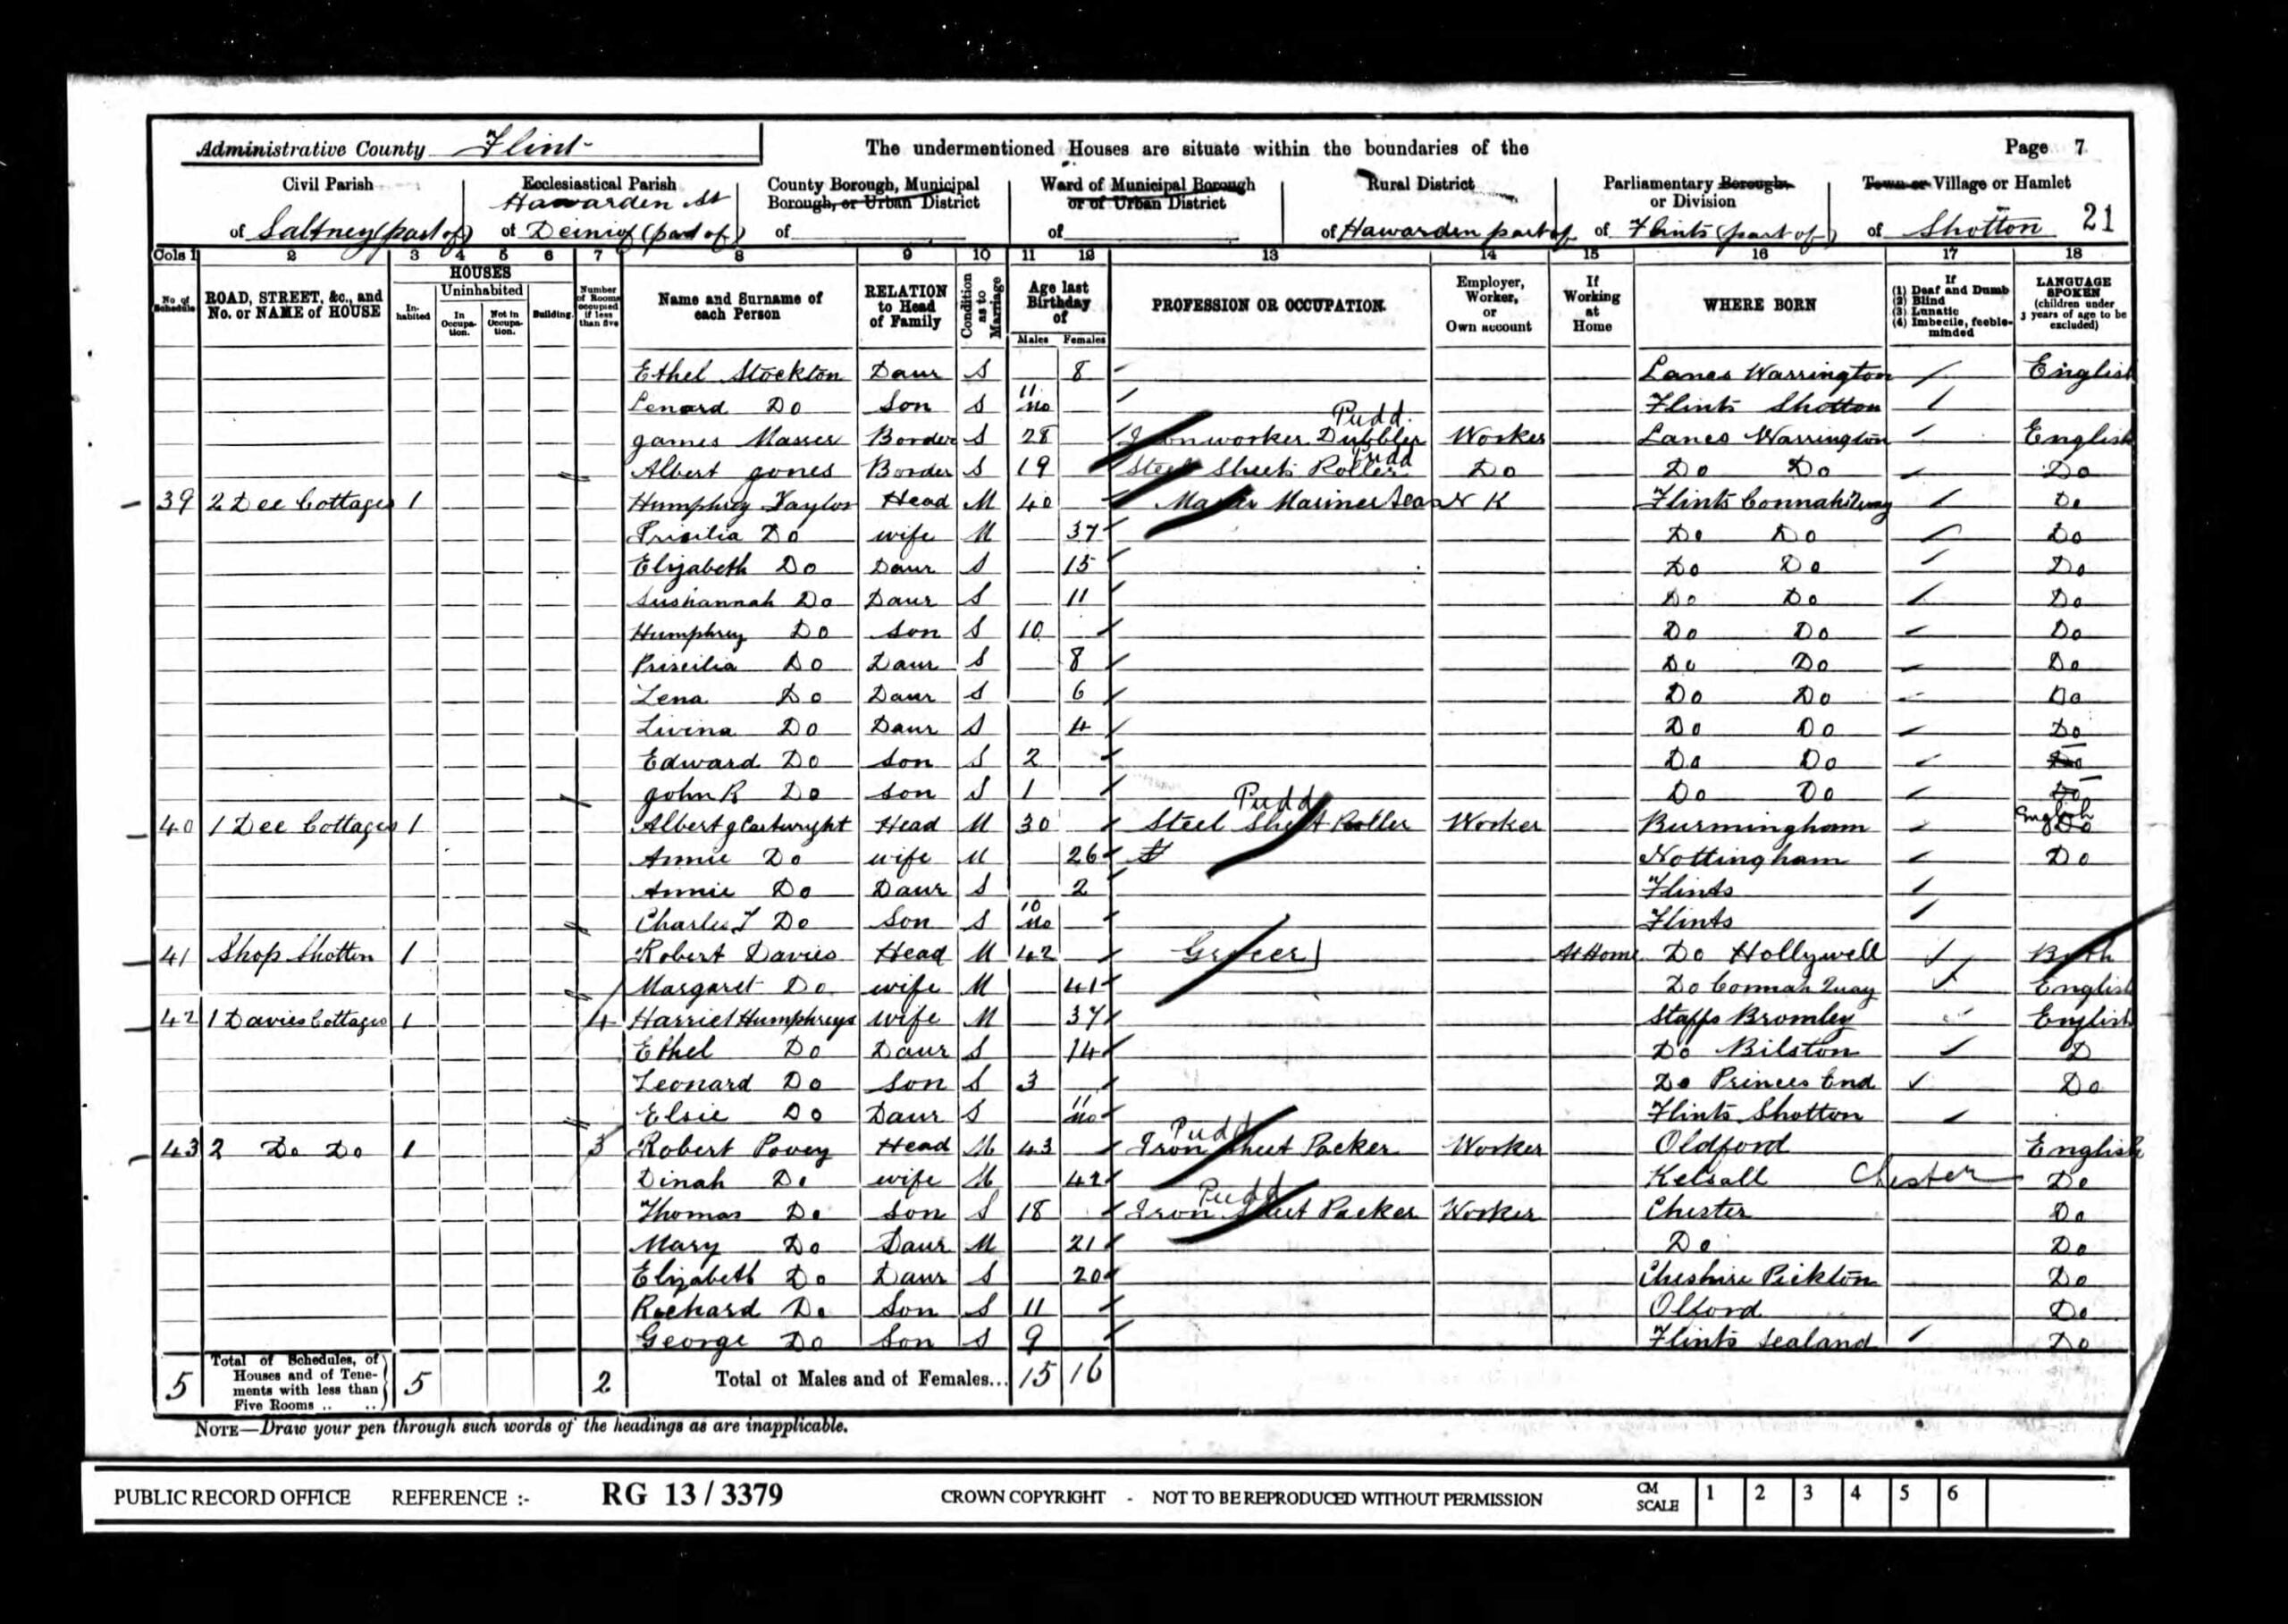 Administrative County Flint
The undermentioned Houses are situate within the boundaries of the
Page 7
Civil Parish
of Saltney (part of)
Ecclesiastical Parish
Hawarden St
of Deiniol (part of)
County Borough, Municipal Borough, or Urban District
of
Ward of Municipal Borough or of Urban District
of
Rural District
of Hawarden part of
Parliamentary Borough or Division
of Flints (part of)
Town or Village or Hamlet
of Shotton
21
Cols 1 2 3 4 5 6 7 8 9 10 11 12 13 14 15 16 17 18
No. of Schedule
ROAD, STREET, &c., and No. or NAME of HOUSE
HOUSES
In-habited
Uninhabited
In Occupa-tion.
Not in Occupa-tion.
Building
Number of Rooms occupied if less than five
Name and Surname of each Person
RELATION to Head of Family
Condition as to Marriage
Age last Birthday of
Males Females
PROFESSION OR OCCUPATION
Employer, Worker, or Own account
If Working at Home
WHERE BORN
If
(1) Deaf and Dumb
(2) Blind
(3) Lunatic
(4) Imbecile, feeble-minded
LANGUAGE SPOKEN
(children under 3 years of age to be excluded)
Ethel Stockton Daur S 8 Lancs Warrington English
Lenard Do Son S 11 mo Flints Shotton
James Border S 28 Ironworker Pudd. Worker Lancs Warrington English
Albert Jones Border S 19 Steel Sheets Roller Pudd Do Do Do Do
39 2 Dee Cottages 1 Humphrey Taylor Head M 40 Master Mariner Sea N K Flints Connahs Quay Do
Prisilia Do wife M 37 Do Do Do
Elizabeth Do Daur S 15 Do Do Do
Sushannah Do Daur S 11 Do Do Do
Humphrey Do Son S 10 Do Do Do
Priscilia Do Daur S 8 Do Do Do
Lena Do Daur S 6 Do Do Do
Livina Do Daur S 4 Do Do Do
Edward Do Son S 2 Do Do Do
John R Do Son S 1 Do Do Do
40 1 Dee Cottages 1 Albert J Cartwright Head M 30 Steel Sheet Roller Pudd Worker Burmingham English Do
Annie Do wife M 26 Nottingham Do
Annie Do Daur S 2 Flints
Charles T Do Son S 10 mo Flints
41 Shop Shotton 1 Robert Davies Head M 42 Grocer At Home Do Hollywell Both
Margaret Do wife M 41 Do Connah Quay English
42 1 Davies Cottages 1 4 Harriet Humphreys wife M 37 Staffs Bromley English
Ethel Do Daur S 14 Do Bilston D
Leonard Do Son S 3 Do Princes End Do
Elsie Do Daur S 11 mo Flints Shotton
43 2 Do Do 1 3 Robert Povey Head M 43 Iron Sheet Packer Pudd Worker Oldford English
Dinah Do wife M 42 Kelsall Chester Do
Thomas Do Son S 18 Iron Sheet Packer Pudd Worker Chester Do
Mary Do Daur M 21 Do Do
Elizabeth Do Daur S 20 Cheshire Pickton Do
Richard Do Son S 11 Olford Do
George Do Son S 9 Flints Sealand Do
5 Total of Schedules, of Houses and of Tene-ments with less than Five Rooms .. .. 5 2 Total of Males and of Females... 15 16
NOTE—Draw your pen through such words of the headings as are inapplicable.
PUBLIC RECORD OFFICE REFERENCE :- RG 13 / 3379 CROWN COPYRIGHT - NOT TO BE REPRODUCED WITHOUT PERMISSION CM SCALE 1 2 3 4 5 6